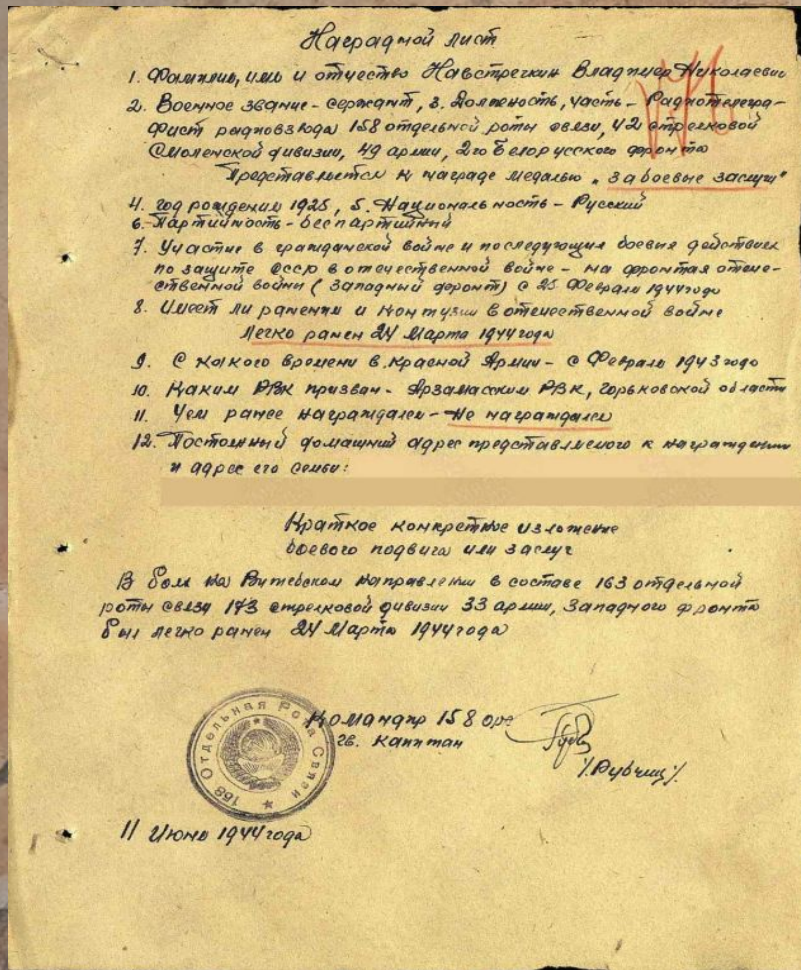 Наградной лист
1. Фамилия, имя и отчество Навстречкин Владимир Николаевич
2. Военное звание - сержант, 3. Должность, часть - Радиотелегра-
фист радиовзвода 158 отдельной роты связи, 42 стрелковой
Смоленской дивизии, 49 армии, 2го Белорусского фронта
Представляется к награде медалью „за боевые заслуги"
4. год рождения 1925, 5. Национальность - Русский
6. Партийность - беспартийный
7. Участие в гражданской войне и последующих боевых действиях
по защите СССР в отечественной войне - на фронтах отече-
ственной войны (Западный фронт) с 25 Февраля 1944 года
8. Имеет ли ранения и контузии в отечественной войне
легко ранен 24 Марта 1944 года
9. С какого времени в Красной Армии - с Февраля 1943 года
10. Каким РВК призван - Арзамасским РВК, Горьковской области
11. Чем ранее награждался - не награждался
12. Постоянный домашний адрес представляемого к награждению
и адрес его семьи:
Краткое конкретное изложение
боевого подвига или заслуг
В бою на Витебском направлении в составе 163 отдельной
роты связи 173 стрелковой дивизии 33 армии, Западного фронта
был легко ранен 24 Марта 1944 года
Командир 158 орс
гв. капитан
/Рубчиц/.
158 Отдельная Рота Связи
11 Июня 1944 года